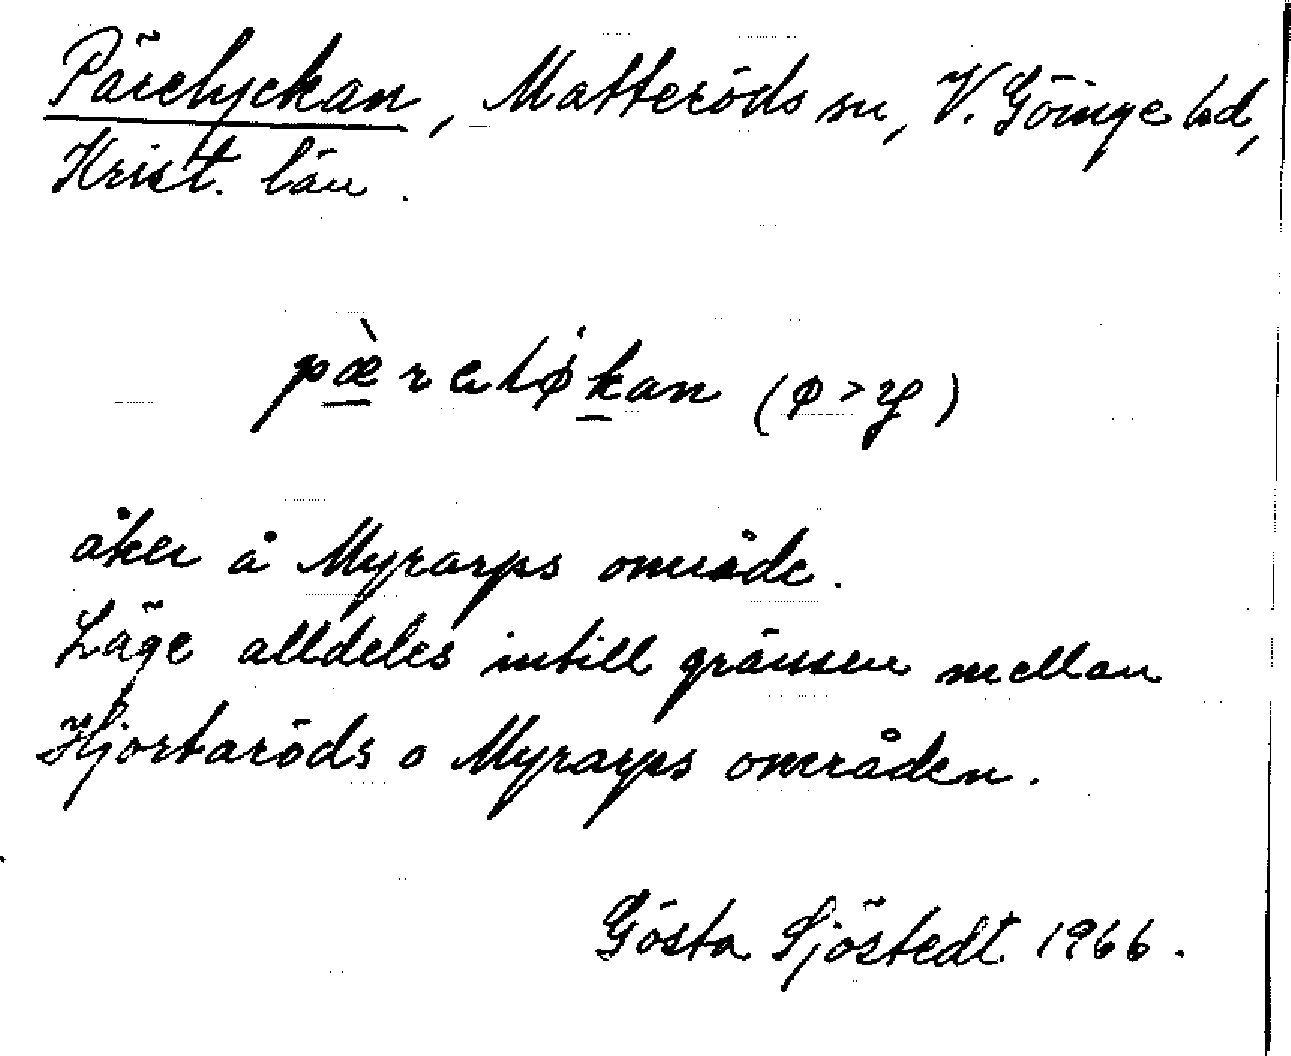 Pärelyckan, Matteröds sn, V. Göinge hd,
Krist. län.
pæ̀relǿkan (ø > y)
åker å Myrarps område.
Läge alldeles intill gränsen mellan
Hjortaröds o Myrarps områden.
Gösta Sjöstedt 1966.